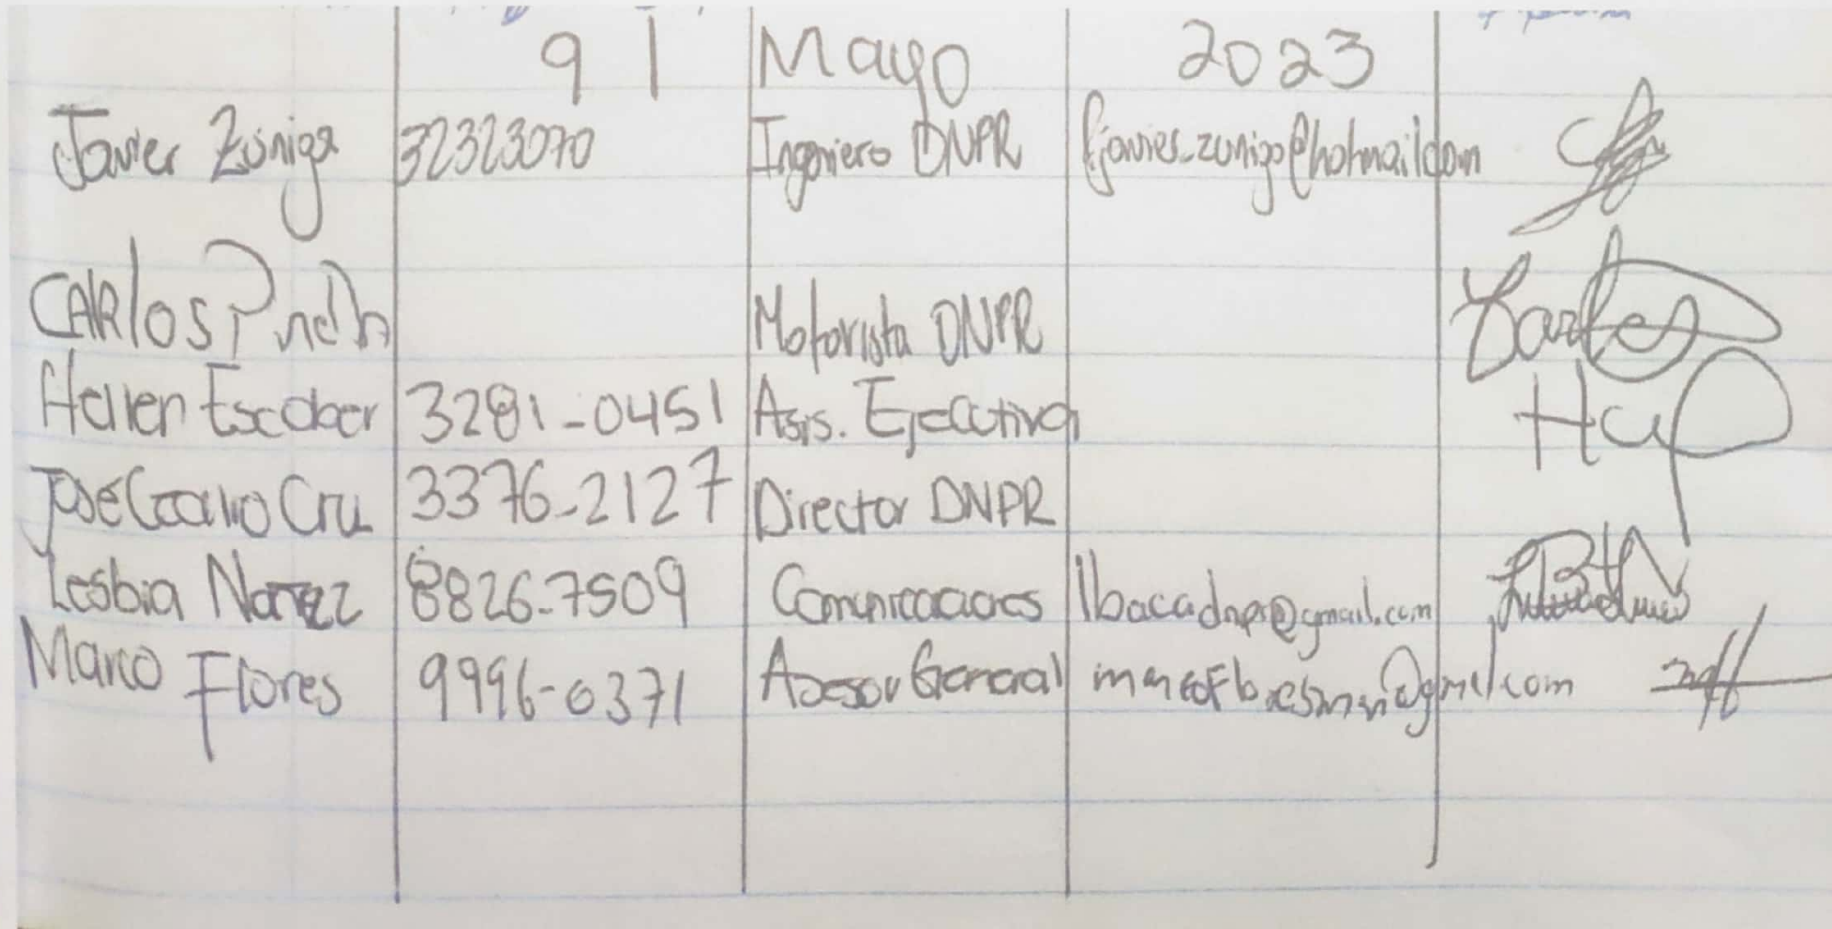 9 | Mayo 2023
Javier Zúniga 32323070 Ingeniero DNPR fjavier_zuniga@hotmail.com
CARlos Motorista DNPR
Heller Escober 3281-0451 Asis. Ejecutiva
José Cru 3376-2127 Director DNPR
Lesbia 8826-7509 Comunicaciones lbacadnpr@gmail.com
Marco Flores 9996-0371 Asesor General